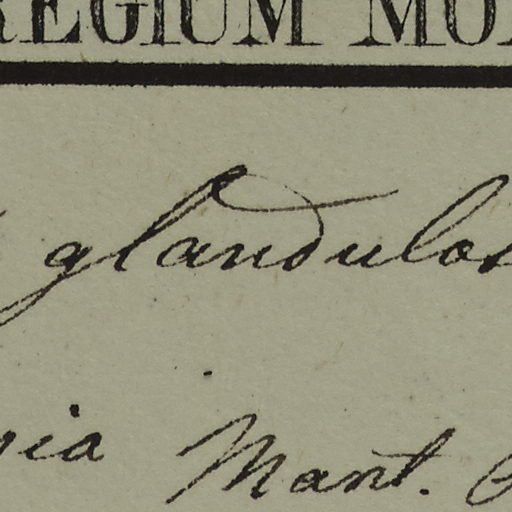 REGIUM MO
glandulos
Mant.